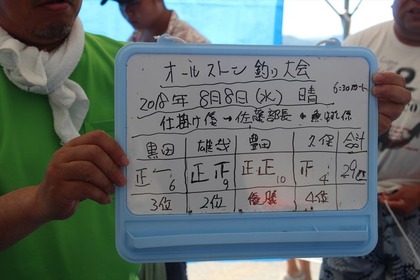 オールストン釣り大会
2018年 8月8日(水) 晴 6:30スタート
仕掛け係→佐藤部長
黒田 雄哉 豊田 久保 合計
正一6 正正9 正正10 正4 29匹
3位 2位 優勝 4位